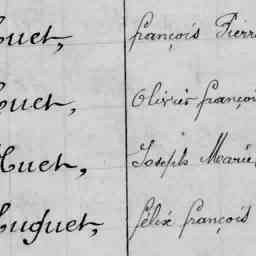 Huet, françois Pierre
Huet, Olivier françois
Huet, Joseph Marie
Huguet, félix françois